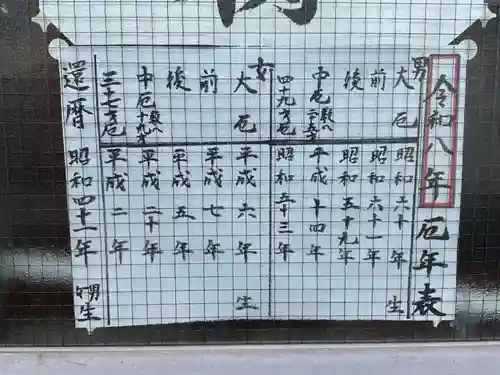 令和八年 厄年表
男 大厄 昭和六十年 生
前 昭和六十一年
後 昭和五十九年
中厄 数へ二十五才 平成十四年
四十九才厄 昭和五十三年
女 大厄 平成六年 生
前 平成七年
後 平成五年
中厄 数へ十九才 平成二十年
三十七才厄 平成二年
還暦 昭和四十一年 男女生